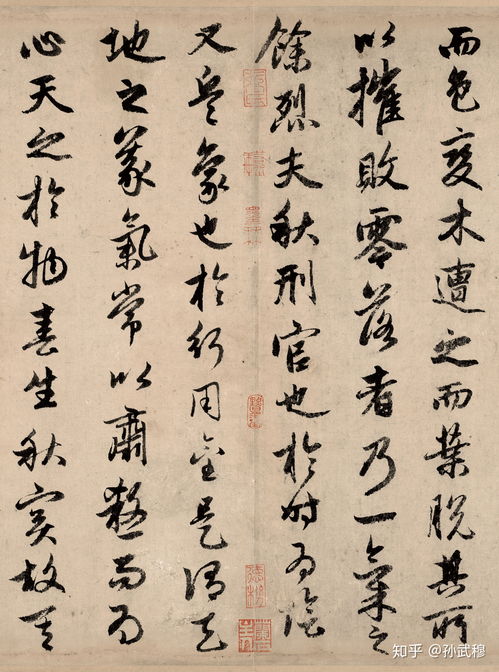 而色變木遭之而葉脫其所
以摧敗零落者乃一氣之
餘烈夫秋刑官也於时為陰
又兵象也於行用金是謂天
地之義氣常以肅殺而為
心天之於物春生秋實故其
知乎 @孙武穆